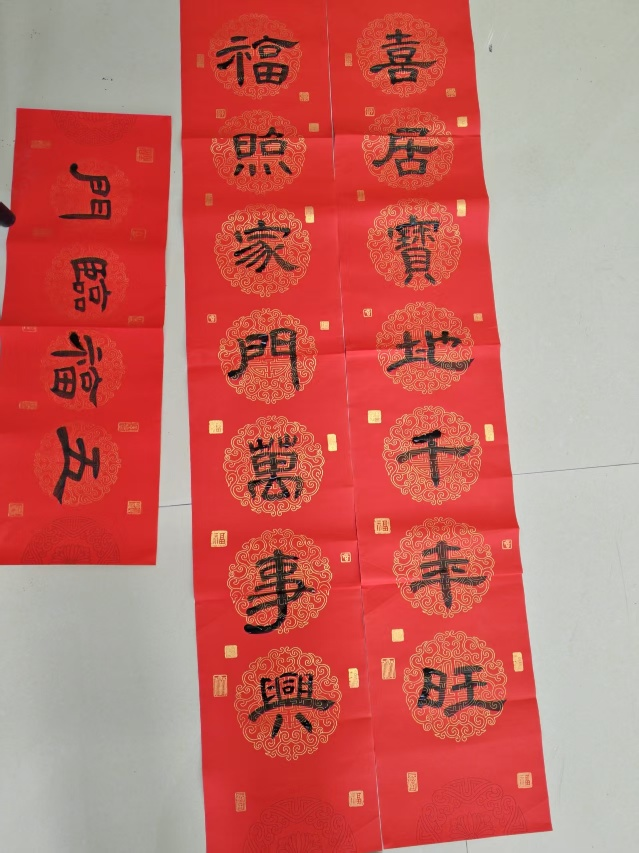 喜居寶地千年旺
福照家門萬事興
五福臨門